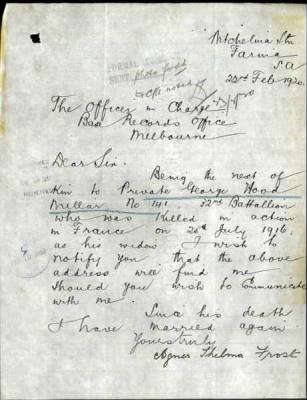 Farina
S A
23rd Feb 1920.
The Officer in Charge
Base Records Office
Melbourne
Dear Sir.
Being the next of
Kin to Private George Hood
Millar No 141. 32nd Battallion
who was killed in action
in France on 20th July 1916.
as his widow I wish to
notify you that the above
address will find me
should you wish to communicate
with me.
Since his death
I have married again
Yours truly
Agnes Thelma Frost